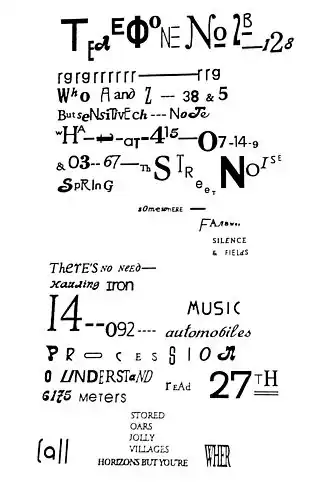 TELEFONE No 2B—128
rgrgrrrrrr———rrg
WhO A and Z — 38 & 5
But seNsiTivEch --- NoTe
wHA—aT-415—O7-14-9
& O3--67—Th STReeT NOISE
SpRInG
sOmewHERE —
FAr
SILENCE
& FIELdS
TherE'S NO NEED—
Hauling IrOn
14--092----
MUSIC
automobiles
PROCESSION
O UNDERSTaND
rEAd
27TH
6175 METERS
STORED
OARS
JOLLY
VILLAGES
HORIZONS BUT YOU'RE
WHER